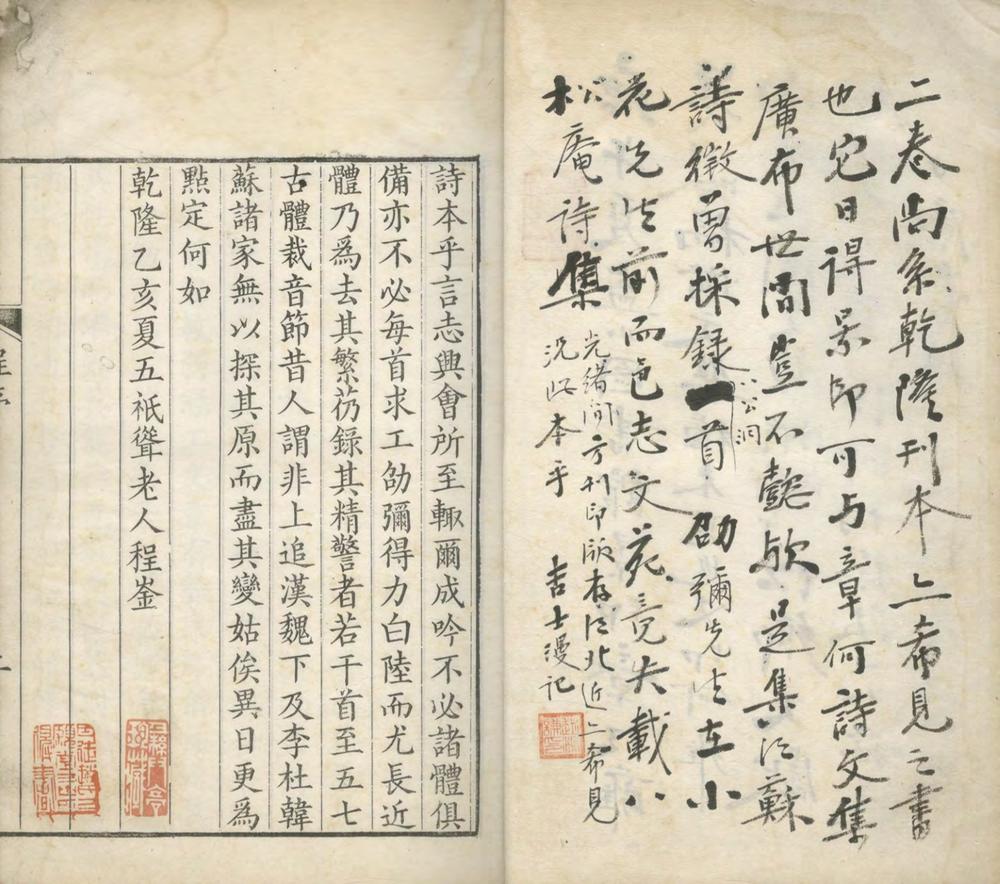 二卷尚系乾隆刊本亦希見之書
也它日得景印可与章何詩文集
廣布世間豈不懿欤是集江蘇
詩徵曾採錄一首劭彌先生在小
八公洞
花先生前而邑志文苑竟失載
松庵詩集
光緒間方刊印版存江北近亦希見
況此本乎 吉士漫记
詩本乎言志興會所至輒爾成吟不必諸體俱
備亦不必每首求工劭彌得力白陸而尤長近
體乃爲去其繁芿錄其精警者若干首至五七
古體裁音節昔人謂非上追漢魏下及李杜韓
蘇諸家無以探其原而盡其變姑俟異日更爲
點定何如
乾隆乙亥夏五祇聳老人程崟
程序